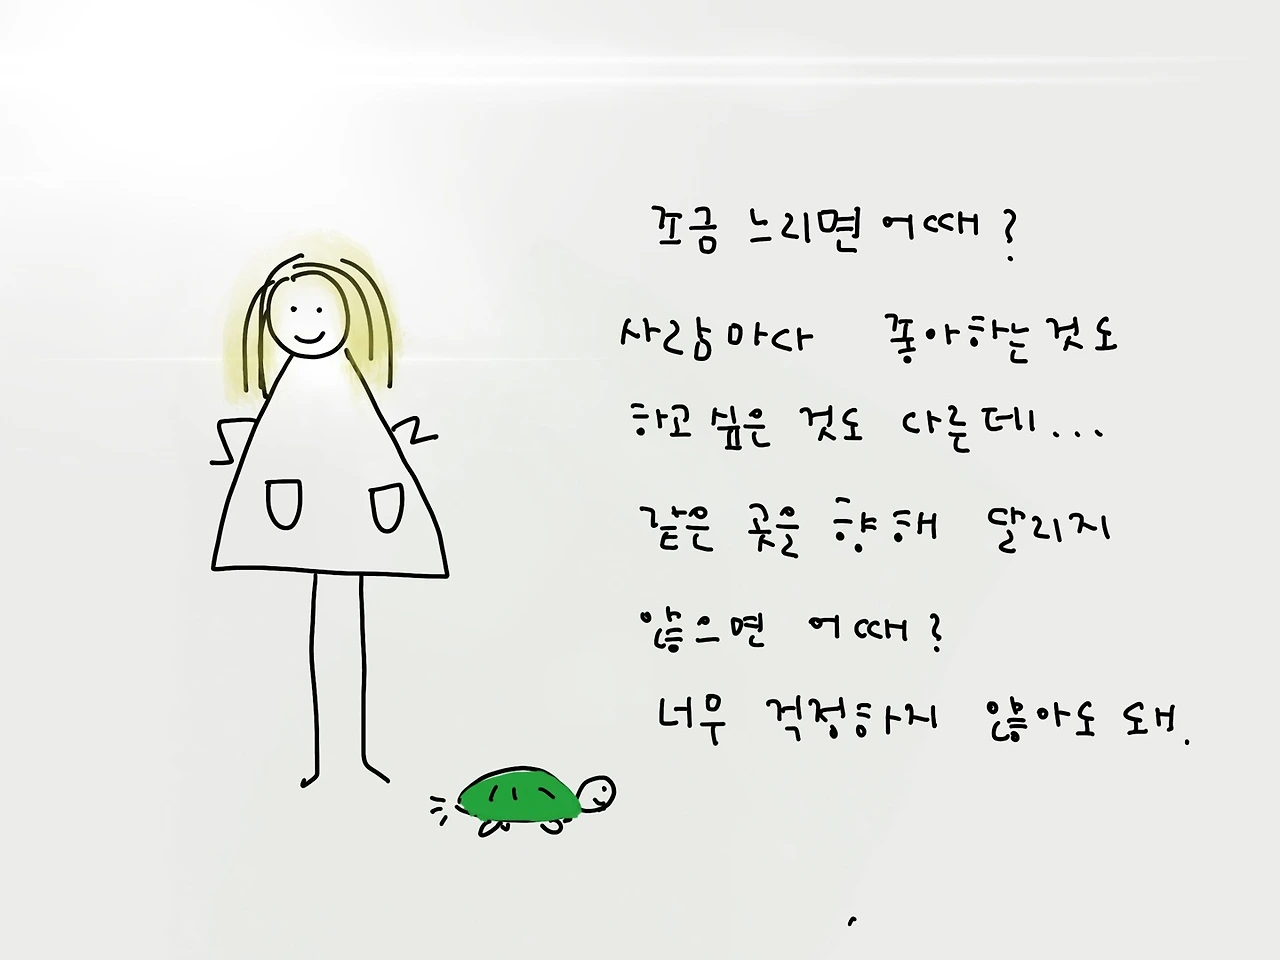 조금 느리면 어때?
사람마다 좋아하는 것도
하고 싶은 것도 다른데...
같은 곳을 향해 달리지
않으면 어때?
너무 걱정하지 않아도 돼.